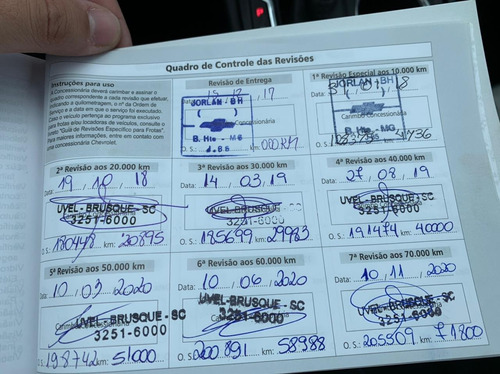 Quadro de Controle das Revisões
Instruções para uso
A Concessionária deverá carimbar e assinar o
quadro correspondente a cada revisão que efetuar,
indicando a quilometragem, o nº da Ordem de
Serviço e a data em que o serviço foi executado.
Caso o veículo pertença ao programa exclusivo
para frotas e/ou locadoras de veículos, consulte o
"Guia de Revisões Específico para Frotas".
Para maiores informações, entre em contato com
uma concessionária Chevrolet.
Revisão de Entrega
15 12 17
JORLAN - BH
Concessionária
B. Hte - MG
km:
1ª Revisão Especial aos 10.000 km
Data: 18
JORLAN - BH
Carimbo Concessionária
B. Hte - MG
2ª Revisão aos 20.000 km
19 / 10 / 18
UVEL - BRUSQUE - SC
3251-6000
O. S.: 180448 km: 20895
3ª Revisão aos 30.000 km
Data: 14 / 03 / 19
UVEL - BRUSQUE - SC
3251-6000
O. S.: 185699 km: 29983
4ª Revisão aos 40.000 km
Data: 27 / 08 / 19
UVEL - BRUSQUE - SC
3251-6000
O. S.: 191474 km: 40000
5ª Revisão aos 50.000 km
Data: 10 / 03 / 2020
UVEL - BRUSQUE - SC
3251-6000
O. S.: 198742 km: 51000
6ª Revisão aos 60.000 km
Data: 10 / 06 / 2020
UVEL - BRUSQUE - SC
3251-6000
O. S.: 200891 km: 58988
7ª Revisão aos 70.000 km
Data: 10 / 11 / 2020
UVEL - BRUSQUE - SC
3251-6000
O. S.: 205509 km: 71800